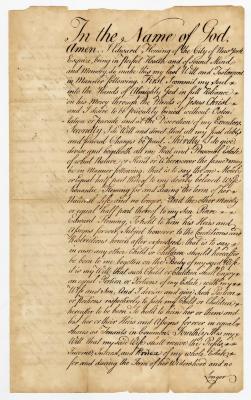 In the Name of God,
Amen. I Edward Fleming of the City of New York
Esquire being in perfect Health and of Sound Mind
and Memory do make this my last Will and Testament
in Manner following. First I commit my Soul
into the Hands of Almighty God in full Reliance
on his Mercy through the Merits of Jesus Christ
and I desire to be Interred without
or parade and at the Discretion of my Executors.
Secondly I do Will and direct that all my Just debts
and funeral Charges be Paid. Thirdly I do give
devise and bequeath all my Real and Personal Estate
of what Nature or Kind or wheresoever the same may
be in Manner following that is to say the one Moiety
or equal half part thereof to my dearly beloved Wife
Fleming for and during the term of her
Natural Life and no longer, And the other Moiety
or equal half part thereof to my Son
Edward Fleming, to hold to him his Heirs and
Assigns for ever Subject however to the Conditions and
Restrictions herein after expressed that is to say in
case any other Child or Children shall hereafter
be born to me begotten on the Body of my said Wife
it is my Will that such Child or Children shall Enjoy
an equal Portion or Portions of my Estate with my
Wife and Son, And I devise and give such Portion
or Portions respectively to such Child or Children
hereafter to be born To hold to him her or them and
his her or their Heirs and Assigns for ever in equal
Shares as Tenants in Common. Fourthly it is my
Will that my said Wife shall receive the Profits,
Interest and Produce of my whole Estate
for and during the Term of her Widowhood and no
longer